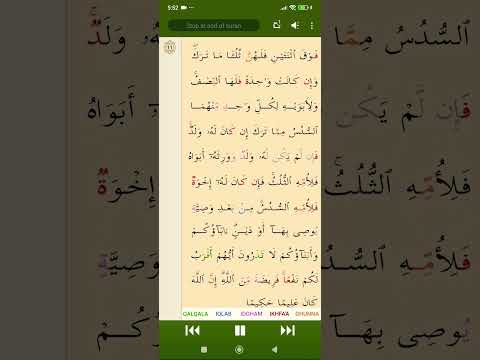 5:52
Stop at end of surah
11
فَوۡقَ ٱثۡنَتَيۡنِ فَلَهُنَّ ثُلُثَا مَا تَرَكَۖ
وَإِن كَانَتۡ وَٰحِدَةٗ فَلَهَا ٱلنِّصۡفُۚ
وَلِأَبَوَيۡهِ لِكُلِّ وَٰحِدٖ مِّنۡهُمَا
ٱلسُّدُسُ مِمَّا تَرَكَ إِن كَانَ لَهُۥ وَلَدٞۚ
فَإِن لَّمۡ يَكُن لَّهُۥ وَلَدٞ وَوَرِثَهُۥٓ أَبَوَاهُ
فَلِأُمِّهِ ٱلثُّلُثُۚ فَإِن كَانَ لَهُۥٓ إِخۡوَةٞ
فَلِأُمِّهِ ٱلسُّدُسُۚ مِنۢ بَعۡدِ وَصِيَّةٖ
يُوصِي بِهَآ أَوۡ دَيۡنٍۗ ءَابَآؤُكُمۡ
وَأَبۡنَآؤُكُمۡ لَا تَدۡرُونَ أَيُّهُمۡ أَقۡرَبُ
لَكُمۡ نَفۡعٗاۚ فَرِيضَةٗ مِّنَ ٱللَّهِۗ إِنَّ ٱللَّهَ
كَانَ عَلِيمًا حَكِيمٗا
QALQALA IQLAB IDGHAM IKHFAA GHUNNA